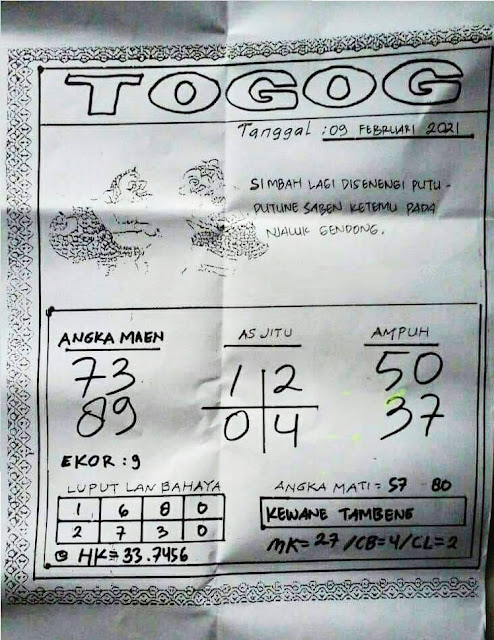 TOGOG
Tanggal : 09 FEBRUARI 2021
SIMBAH LAGI DISENENGI PUTU -
PUTUNE SABEN KETEMU PADA
NJALUK GENDONG.
ANGKA MAEN
73
89
EKOR : 9
AS JITU
1 2
0 4
AMPUH
50
37
LUPUT LAN BAHAYA
1 6 8 0
2 7 3 0
HK = 33.7456
ANGKA MATI = 57 80
KEWANE TAMBENG
MK = 27 / CB = 4 / CL = 2